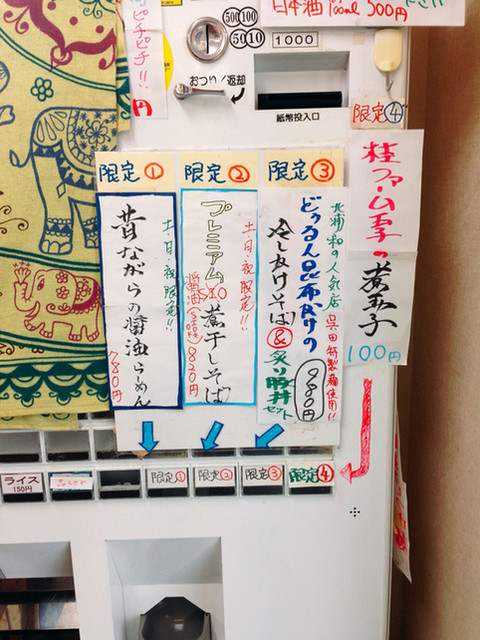 ピチピチ!!
円
日本酒 100ml 500円
500 100
50 10
1000
おつり/返却
紙幣投入口
限定④
限定①
土・日・祝限定!!
昔ながらの醤油らーめん
780円
限定②
土・日・祝限定!!
プレミアム
煮干しそば
醤油
820円
限定③
北浦和の人気店
特製麺使用!!
どぅるん昆布だけの
冷しぶけそば
&
炙り豚丼セット
980円
桂ファーム玉子の
煮玉子
100円
ライス
150円
限定①
限定②
限定③
限定④